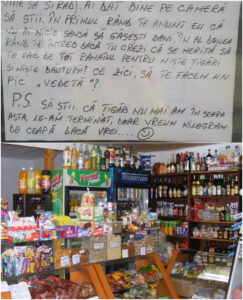 VINE SĂ ȘI RADĂ! AI DAT BINE PE CAMERĂ
SĂ ȘTII. ÎN PRIMUL RÂND TE ANUNȚ EU CĂ
NU AI NICIO ȘANSĂ SĂ GĂSEȘTI BANI, ÎN AL DOILEA
RÂND TE ÎNTREB DACĂ TU CREZI CĂ SE MERITĂ SĂ
TE FAC DE TOT RAHATUL PENTRU NIȘTE ȚIGĂRI
ȘI NIȘTE BĂUTURĂ? CE ZICI, SĂ TE FACEM UN
PIC „VEDETĂ"?
P.S. SĂ ȘTII CĂ ȚIGĂRI NU MAI AM ÎN SEARA
ASTA, LE-AM TERMINAT, DOAR VREUN KILOGRAM
DE CEAPĂ DACĂ VREI...